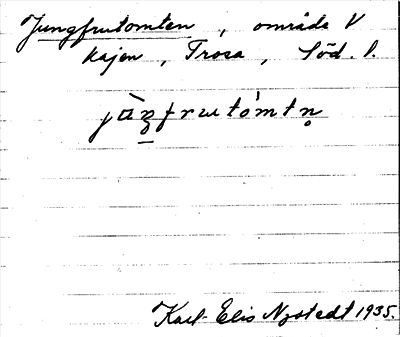 Jungfrutomten, område V
kajen, Trosa, Söd. l.
Karl-Elis Nystedt 1935.